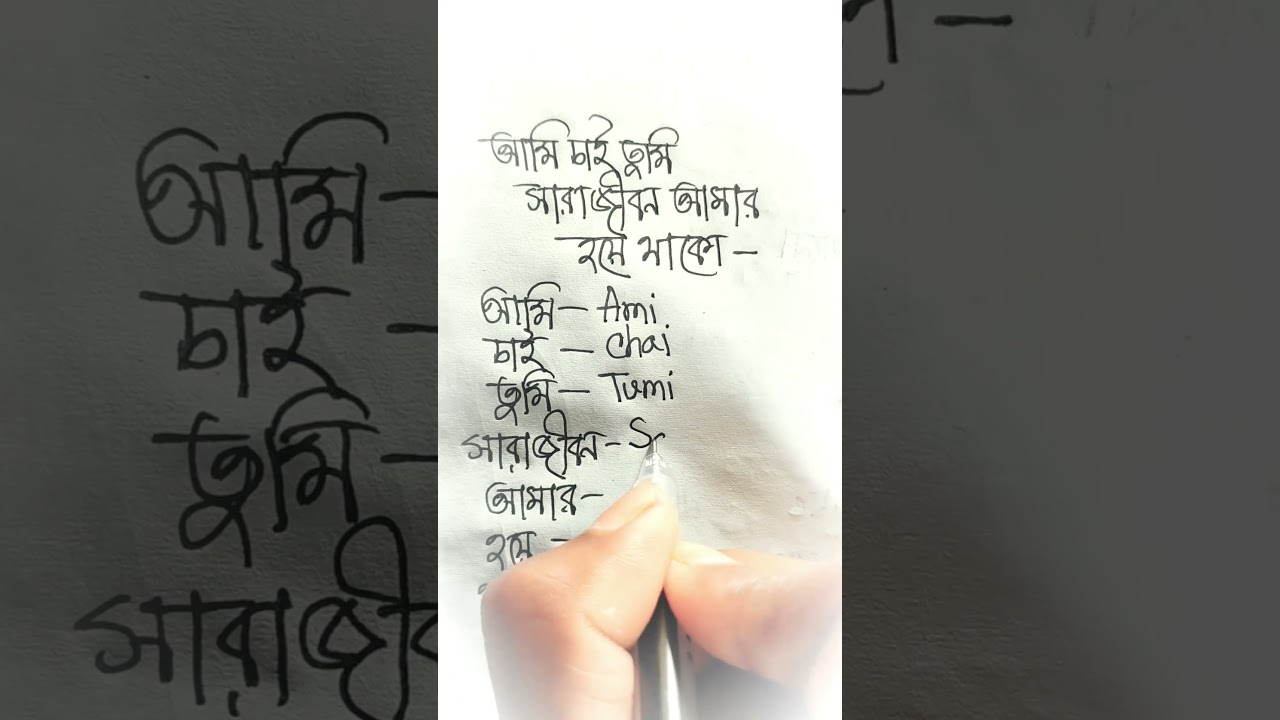 আমি চাই তুমি
সারাজীবন আমার
হয়ে থাকো –
আমি – Ami
চাই – Chai
তুমি – Tumi
সারাজীবন – S
আমার –
হয়ে –